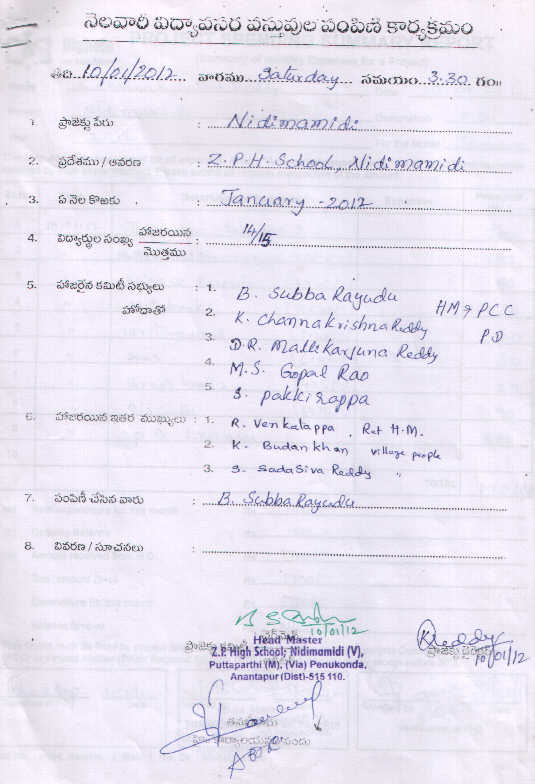 నెలవారీ విద్యావసర వస్తువుల పంపిణి కార్యక్రమం
తేది 10/01/2012 వారము Saturday సమయం 3.30 గం॥
1. ప్రాజెక్టు పేరు : Nidimamidi
2. ప్రదేశము / ఆవరణ : Z.P.H. School, Nidimamidi
3. ఏ నెల కొఱకు : January - 2012
4. విద్యార్థుల సంఖ్య హాజరయిన / మొత్తము : 14/15
5. హాజరైన కమిటీ సభ్యులు : 1. B. Subba Rayudu HM & PCC
హోదాతో 2. K. Channakrishna Reddy PD
3. D.R. Mallikarjuna Reddy
4. M.S. Gopal Rao
5. S. Pakkirappa
6. హాజరయిన ఇతర ముఖ్యులు : 1. R. Venkatappa, Ret H.M.
2. K. Budan khan village people
3. S. Sadasiva Reddy "
7. పంపిణీ చేసిన వారు : B. Subba Rayudu
8. వివరణ / సూచనలు :
10/01/12
ప్రాజెక్టు కమిటీ
Head Master
Z.P. High School, Nidimamidi (V),
Puttaparthi (M), (Via) Penukonda,
Anantapur (Dist)-515 110.
Reddy
10/01/12